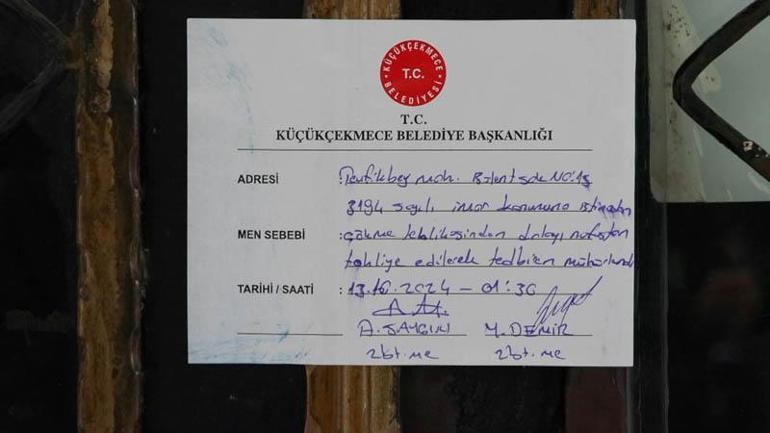 KÜÇÜKÇEKMECE
T.C.
BELEDİYESİ
T.C.
KÜÇÜKÇEKMECE BELEDİYE BAŞKANLIĞI
ADRESİ : Tevfikbey mah. Bülent sok NO:15
3194 sayılı imar kanununa istinaden
MEN SEBEBİ : çökme tehlikesinden dolayı nufustan
tahliye edilerek tedbiren mühürlendi
TARİHİ / SAATİ : 13.10.2024 - 01:30
A. SAYGILI M. DEMİR
zbt. me zbt. me